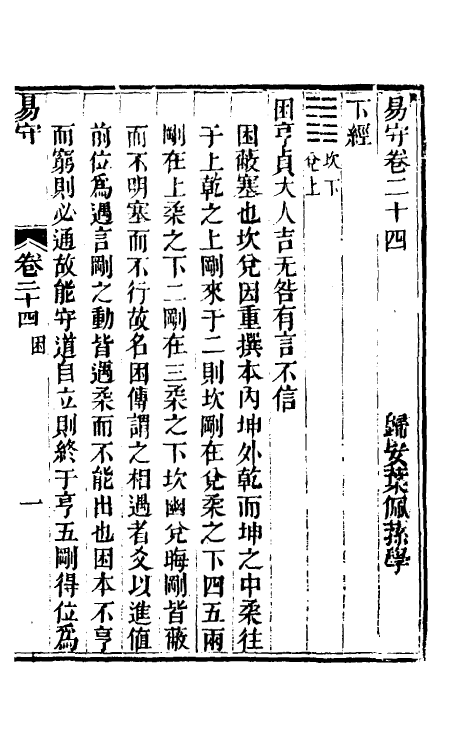 易守卷二十四
歸安葉佩蓀學
下經
䷮
坎下
兌上
困亨貞大人吉无咎有言不信
困蔽塞也坎兌因重撰本內坤外乾而坤之中柔往
于上乾之上剛來于二則坎剛在兌柔之下四五兩
剛在上柔之下二剛在三柔之下坎幽兌晦剛皆蔽
而不明塞而不行故名困傳謂之相遇者爻以進值
前位爲遇言剛之動皆遇柔而不能出也困本不亨
而窮則必通故能守道自立則終于亨五剛得位爲
易守
卷二十四
困
一